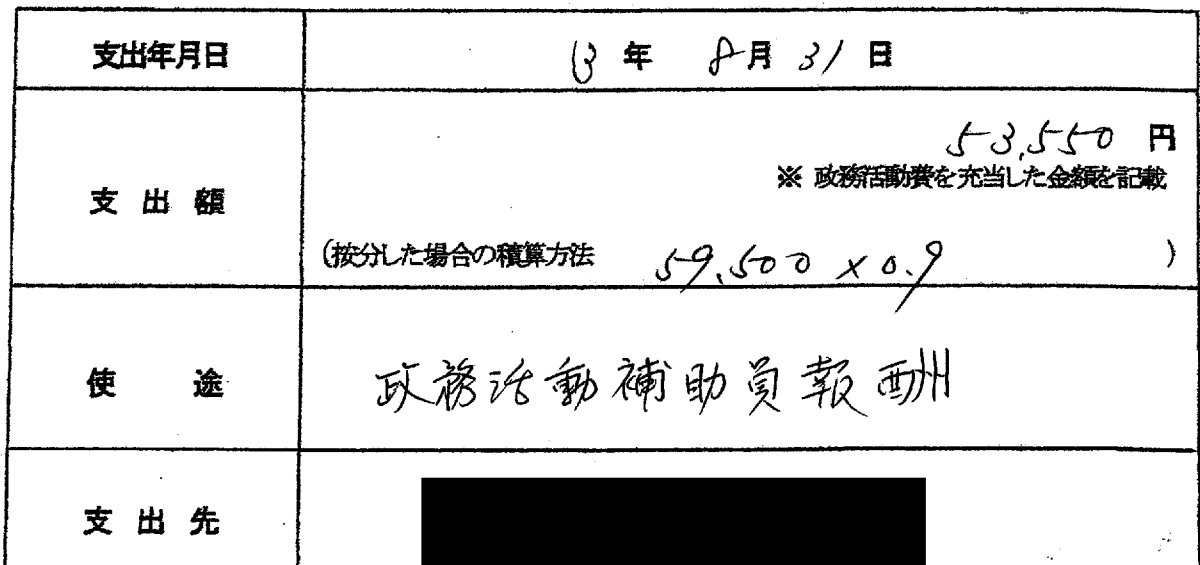 支出年月日 13年 8月31日
53,550 円
※ 政務活動費を充当した金額を記載
支出額
(按分した場合の積算方法 59,500 × 0.9 )
使途 政務活動補助員報酬
支出先